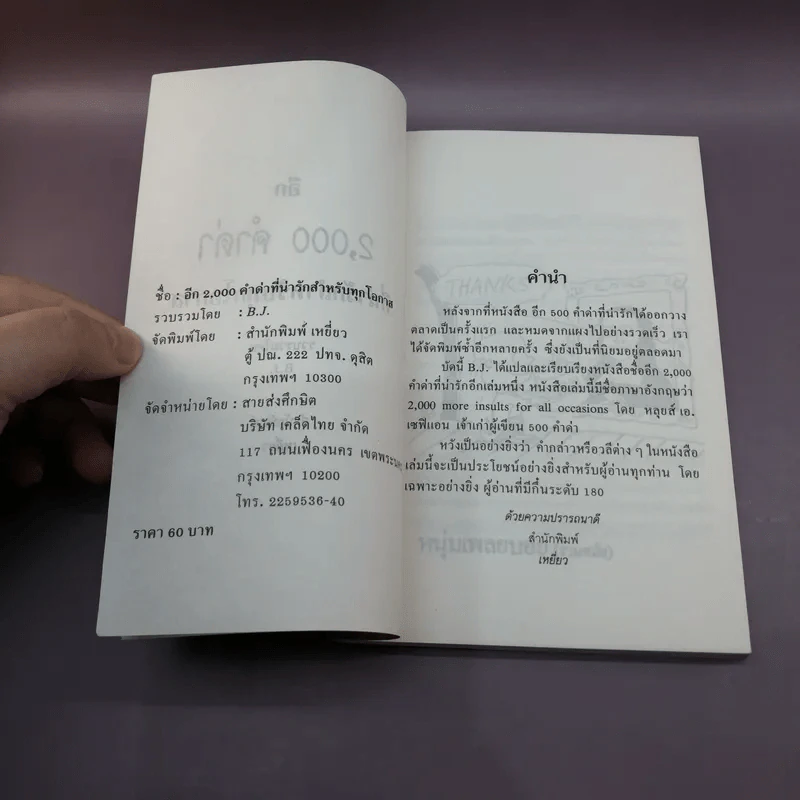 ชื่อ : อีก 2,000 คำด่าที่น่ารักสำหรับทุกโอกาส
รวบรวมโดย : B.J.
จัดพิมพ์โดย : สำนักพิมพ์ เหยี่ยว
ตู้ ปณ. 222 ปทจ. ดุสิต
กรุงเทพฯ 10300
จัดจำหน่ายโดย : สายส่งศึกษิต
บริษัท เคล็ดไทย จำกัด
117 ถนนเฟื่องนคร เขตพระนคร
กรุงเทพฯ 10200
โทร. 2259536-40
ราคา 60 บาท
คำนำ
หลังจากที่หนังสือ อีก 500 คำด่าที่น่ารักได้ออกวาง
ตลาดเป็นครั้งแรก และหมดจากแผงไปอย่างรวดเร็ว เรา
ได้จัดพิมพ์ซ้ำอีกหลายครั้ง ซึ่งยังเป็นที่นิยมอยู่ตลอดมา
บัดนี้ B.J. ได้แปลและเรียบเรียงหนังสือชื่ออีก 2,000
คำด่าที่น่ารักอีกเล่มหนึ่ง หนังสือเล่มนี้มีชื่อภาษาอังกฤษว่า
2,000 more insults for all occasions โดย หลุยส์ เอ.
เซฟีแอน เจ้าเก่าผู้เขียน 500 คำด่า
หวังเป็นอย่างยิ่งว่า คำกล่าวหรือวลีต่าง ๆ ในหนังสือ
เล่มนี้จะเป็นประโยชน์อย่างยิ่งสำหรับผู้อ่านทุกท่าน โดย
เฉพาะอย่างยิ่ง ผู้อ่านที่มีกึ๋นระดับ 180
ด้วยความปรารถนาดี
สำนักพิมพ์
เหยี่ยว